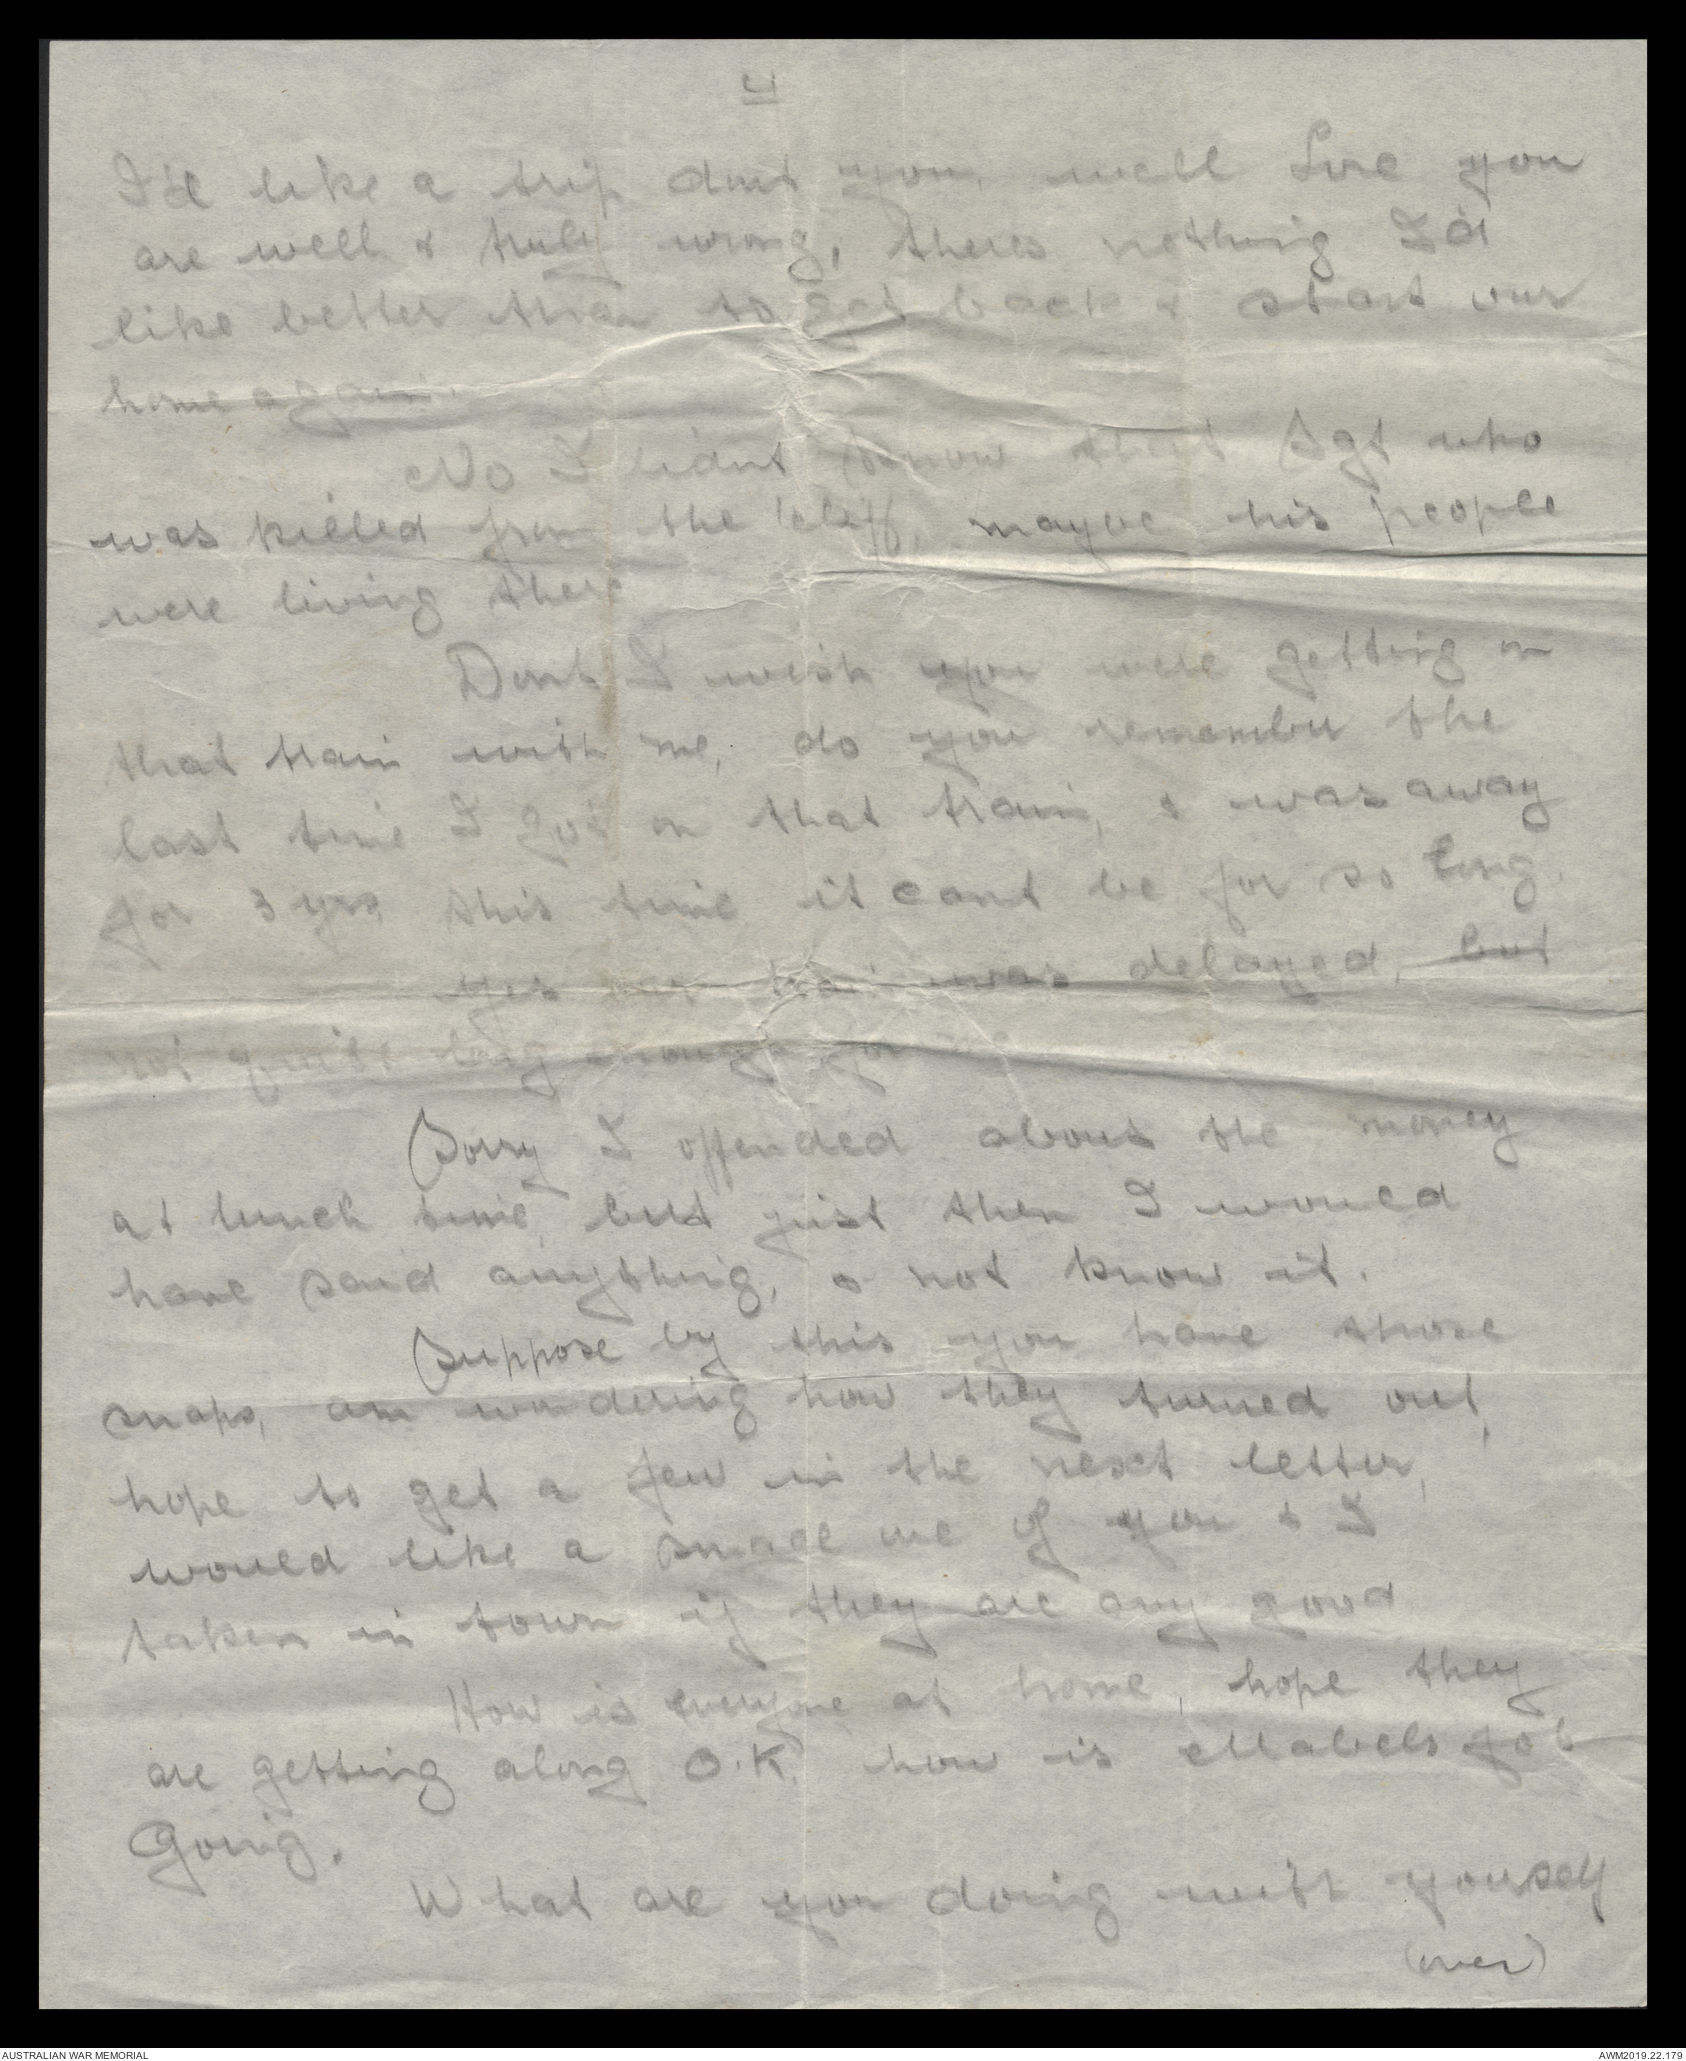 4
I'd like a trip dont you, well Love you
are well & truly wrong, theres nothing I'd
like better than to get back & start our
home again.
No I didnt know that Sgt who
was killed from the cliff, maybe his people
were living there
Dont I wish you were getting on
that train with me, do you remember the
last time I got on that train, & was away
for 3 yrs, this time it cant be for so long.
Yes our train was delayed, but
not quite long enough for me
Sorry I offended about the money
at lunch time, but just then I would
have said anything, & not know it.
Suppose by this you have those
snaps, am wondering how they turned out,
hope to get a few in the next letter,
would like a small one of you & I
taken in town if they are any good
How is everyone at home, hope they
are getting along O.K. how is Mabels job
Going.
What are you doing with youself
(over)
AUSTRALIAN WAR MEMORIAL
AWM2019.22.179